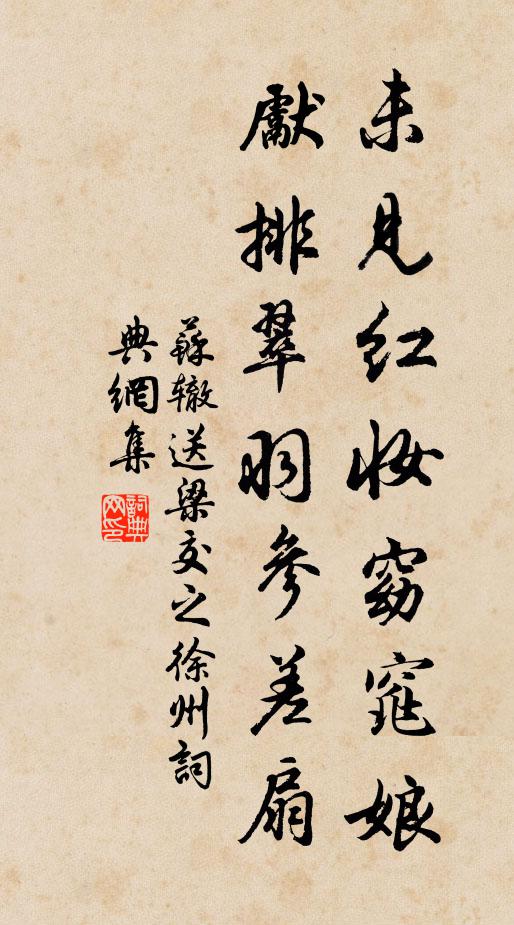 未見紅妝窈窕娘
獻排翠羽參差扇
蘇轍送梁交之徐州詞
典網集
詞典网印